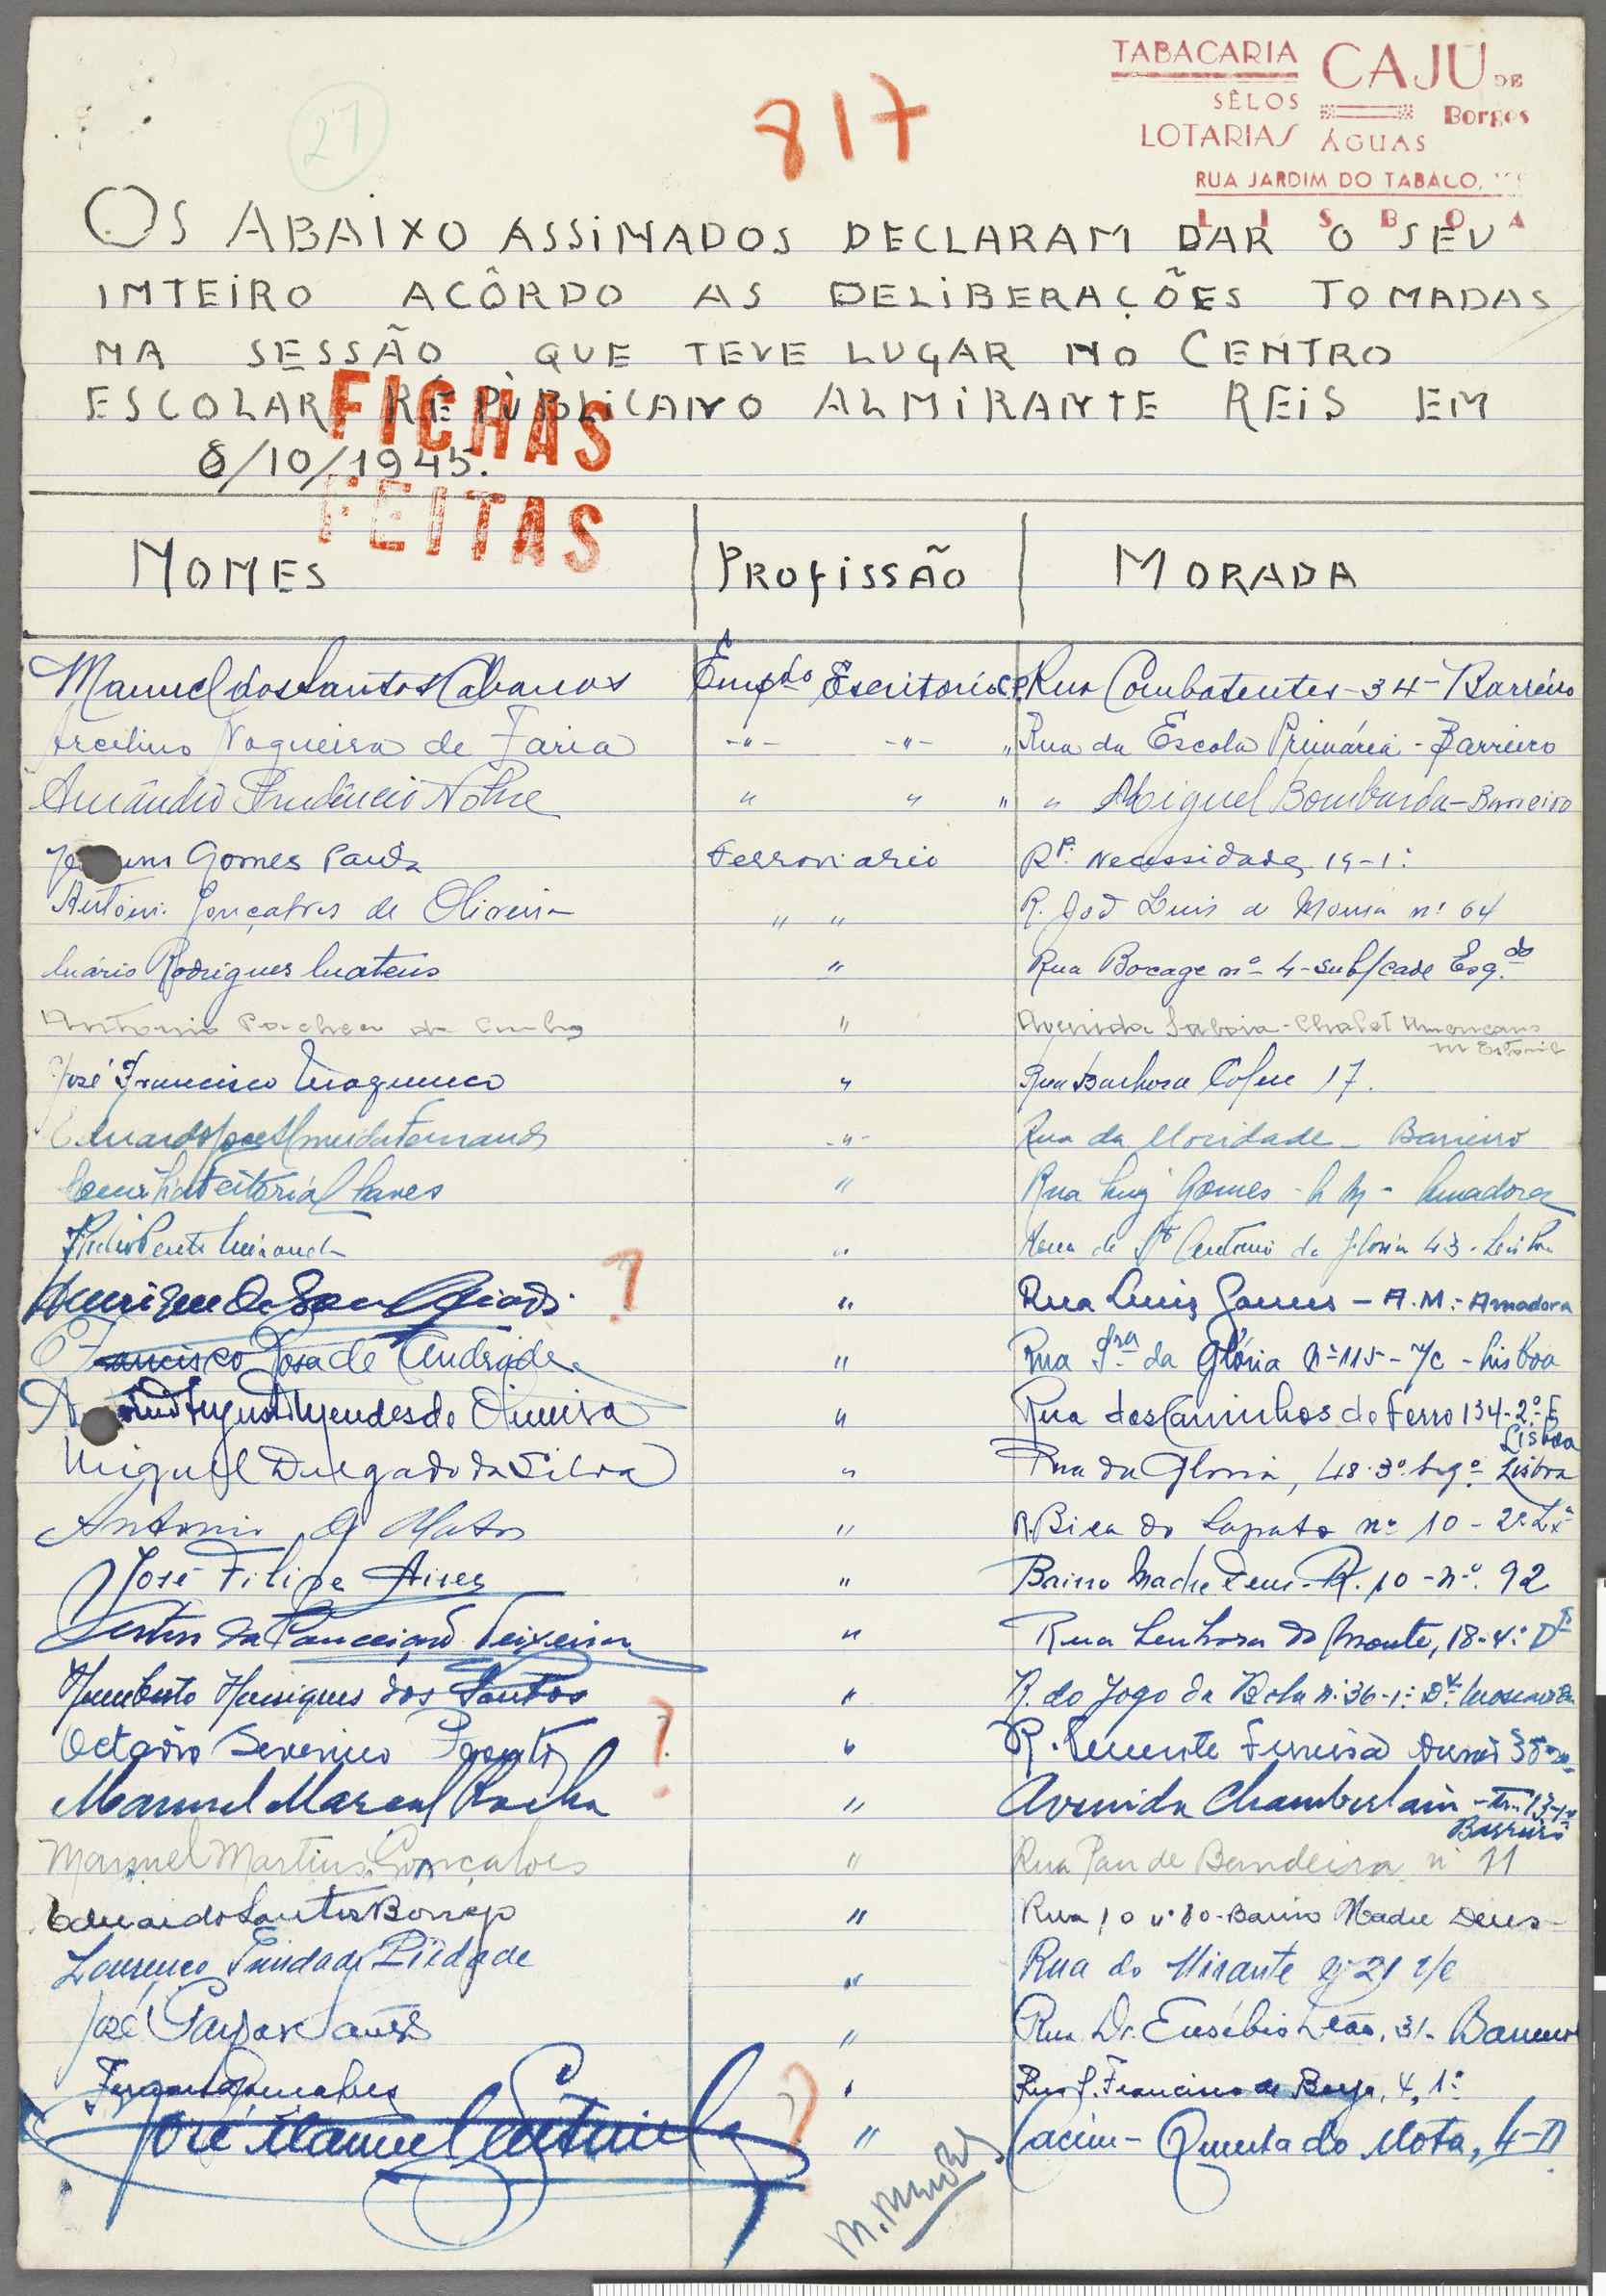 TABACARIA CAJÚ DE
SÊLOS Borges
LOTARIAS ÁGUAS
RUA JARDIM DO TABACO,
LISBOA
27
817
OS ABAIXO ASSINADOS DECLARAM DAR O SEU
INTEIRO ACÔRDO AS DELIBERAÇÕES TOMADAS
NA SESSÃO QUE TEVE LUGAR NO CENTRO
ESCOLAR REPUBLICANO ALMIRANTE REIS EM
8/10/1945.
FICHAS
FEITAS
NOMES PROFISSÃO MORADA
Manuel dos Santos Cabanas Empdo Escritorio Rua Combatentes - 34 - Barreiro
Arcelino Nogueira de Faria -"- -"- " Rua da Escola Primária - Barreiro
Amândio Prudêncio Nobre " " " " Miguel Bombarda - Barreiro
Gomes Ferroviario Necessidades 19-1º
António Gonçalves de Oliveira " " R. Luis de nº 64
Mário Rodrigues Mateus " Rua Bocage nº 4 - sub/cave Esq.do
Antonio Pacheco da Cunha " Avenida Saboia - Chalet Americano
M Estoril
José Francisco " Rua Barbosa 17.
Eduardo José Almeida Fernandes -"- Rua da - Barreiro
Chaves " Rua Luiz Gomes - A M - Amadora
Miranda " de Sto Antonio da Gloria 43 - Lisboa
Henrique ? " Rua Luiz Gomes - A.M. - Amadora
Francisco Rosa de Andrade " Rua Sra da Glória Nº 115 - r/c - Lisboa
Augusto Mendes de Oliveira " Rua dos Caminhos de Ferro 134-2º-E
Lisboa
Miguel Delgado da Silva " Rua da Gloria, 48-3º Esqº Lisboa
Antonio Matos " R. Bica do Sapato nº 10 - 2º Lxª
José Filipe Aires " Bairro Madre Deus - R. 10 - nº. 92
da Conceição Teixeira " Rua Senhora do Monte, 18-4º Dto
Humberto Henriques dos Santos " R. do Jogo da Bola nº 36-1º Dto
Octávio Severino ? " R. Tenente Ferreira
Manuel Marçal Rocha " Avenida Chamberlain
Barreiro
Manuel Martins Gonçalves " Rua Pau de Bandeira nº 11
Eduardo Santos Borrego " Rua 10 nº 80 - Bairro Madre Deus
Lourenço Trindade Piedade " Rua do Mirante 21 r/c
José Gaspar " Rua Dr. Eusébio Leão, 31 - Barreiro
Gonçalves " Rua S. Francisco de Borja, 4, 1º
José Manuel ? " Cacém - Quinta do Mota, 4-D
M. Mendes